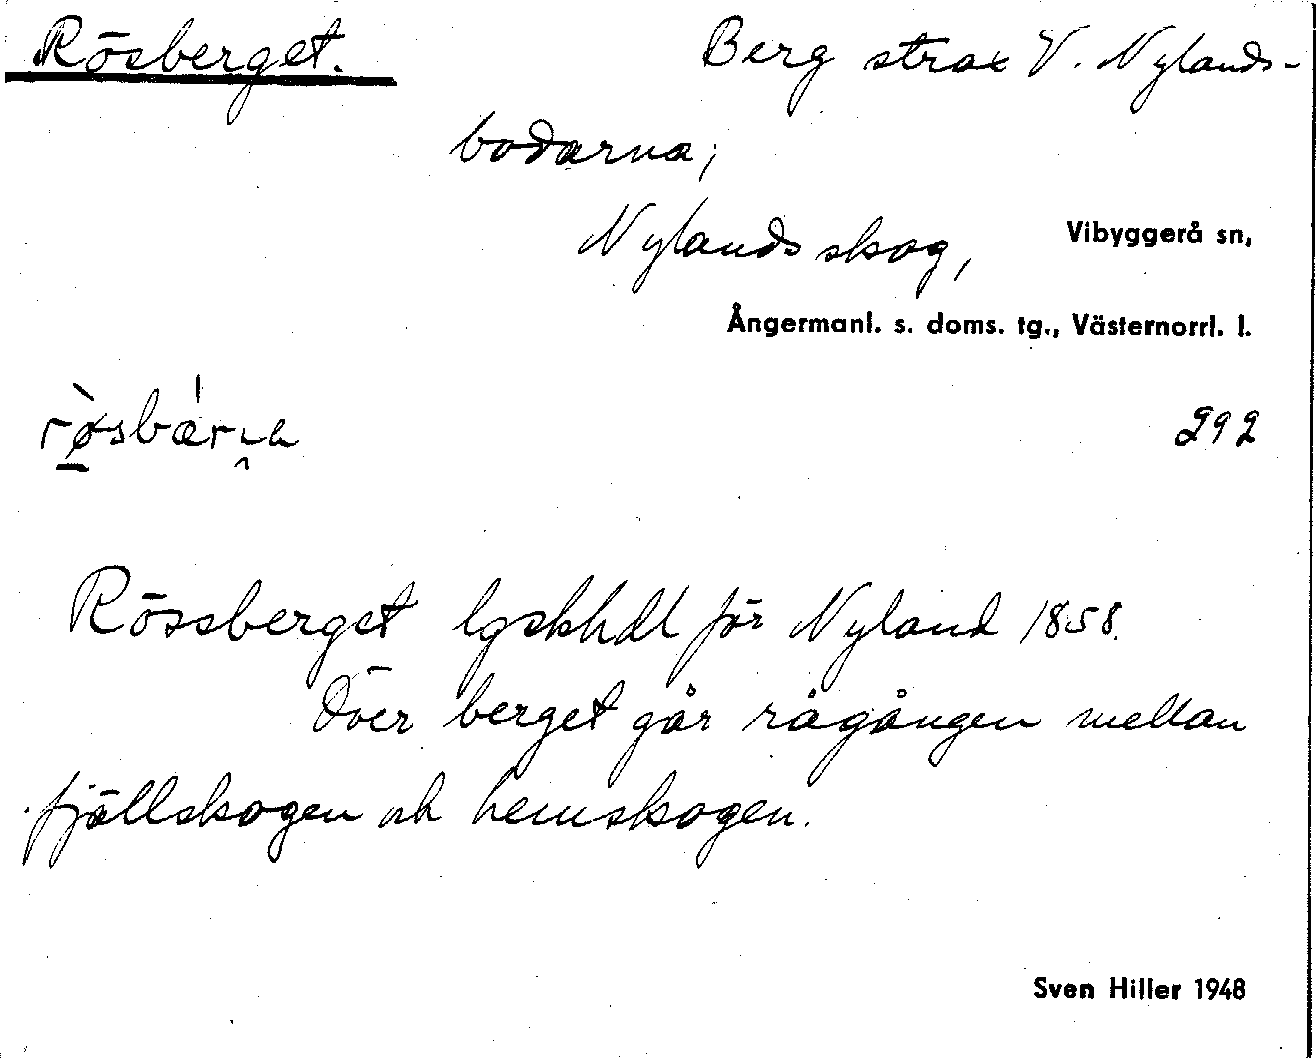 Rösberget. Berg strax V. Nylands-
bodarna;
Nylands skog, Vibyggerå sn,
Ångermanl. s. doms. tg., Västernorrl. l.
292
Rössberget lgskhdl för Nyland 1858.
Över berget går rågången mellan
fjällskogen och hemskogen.
Sven Hiller 1948